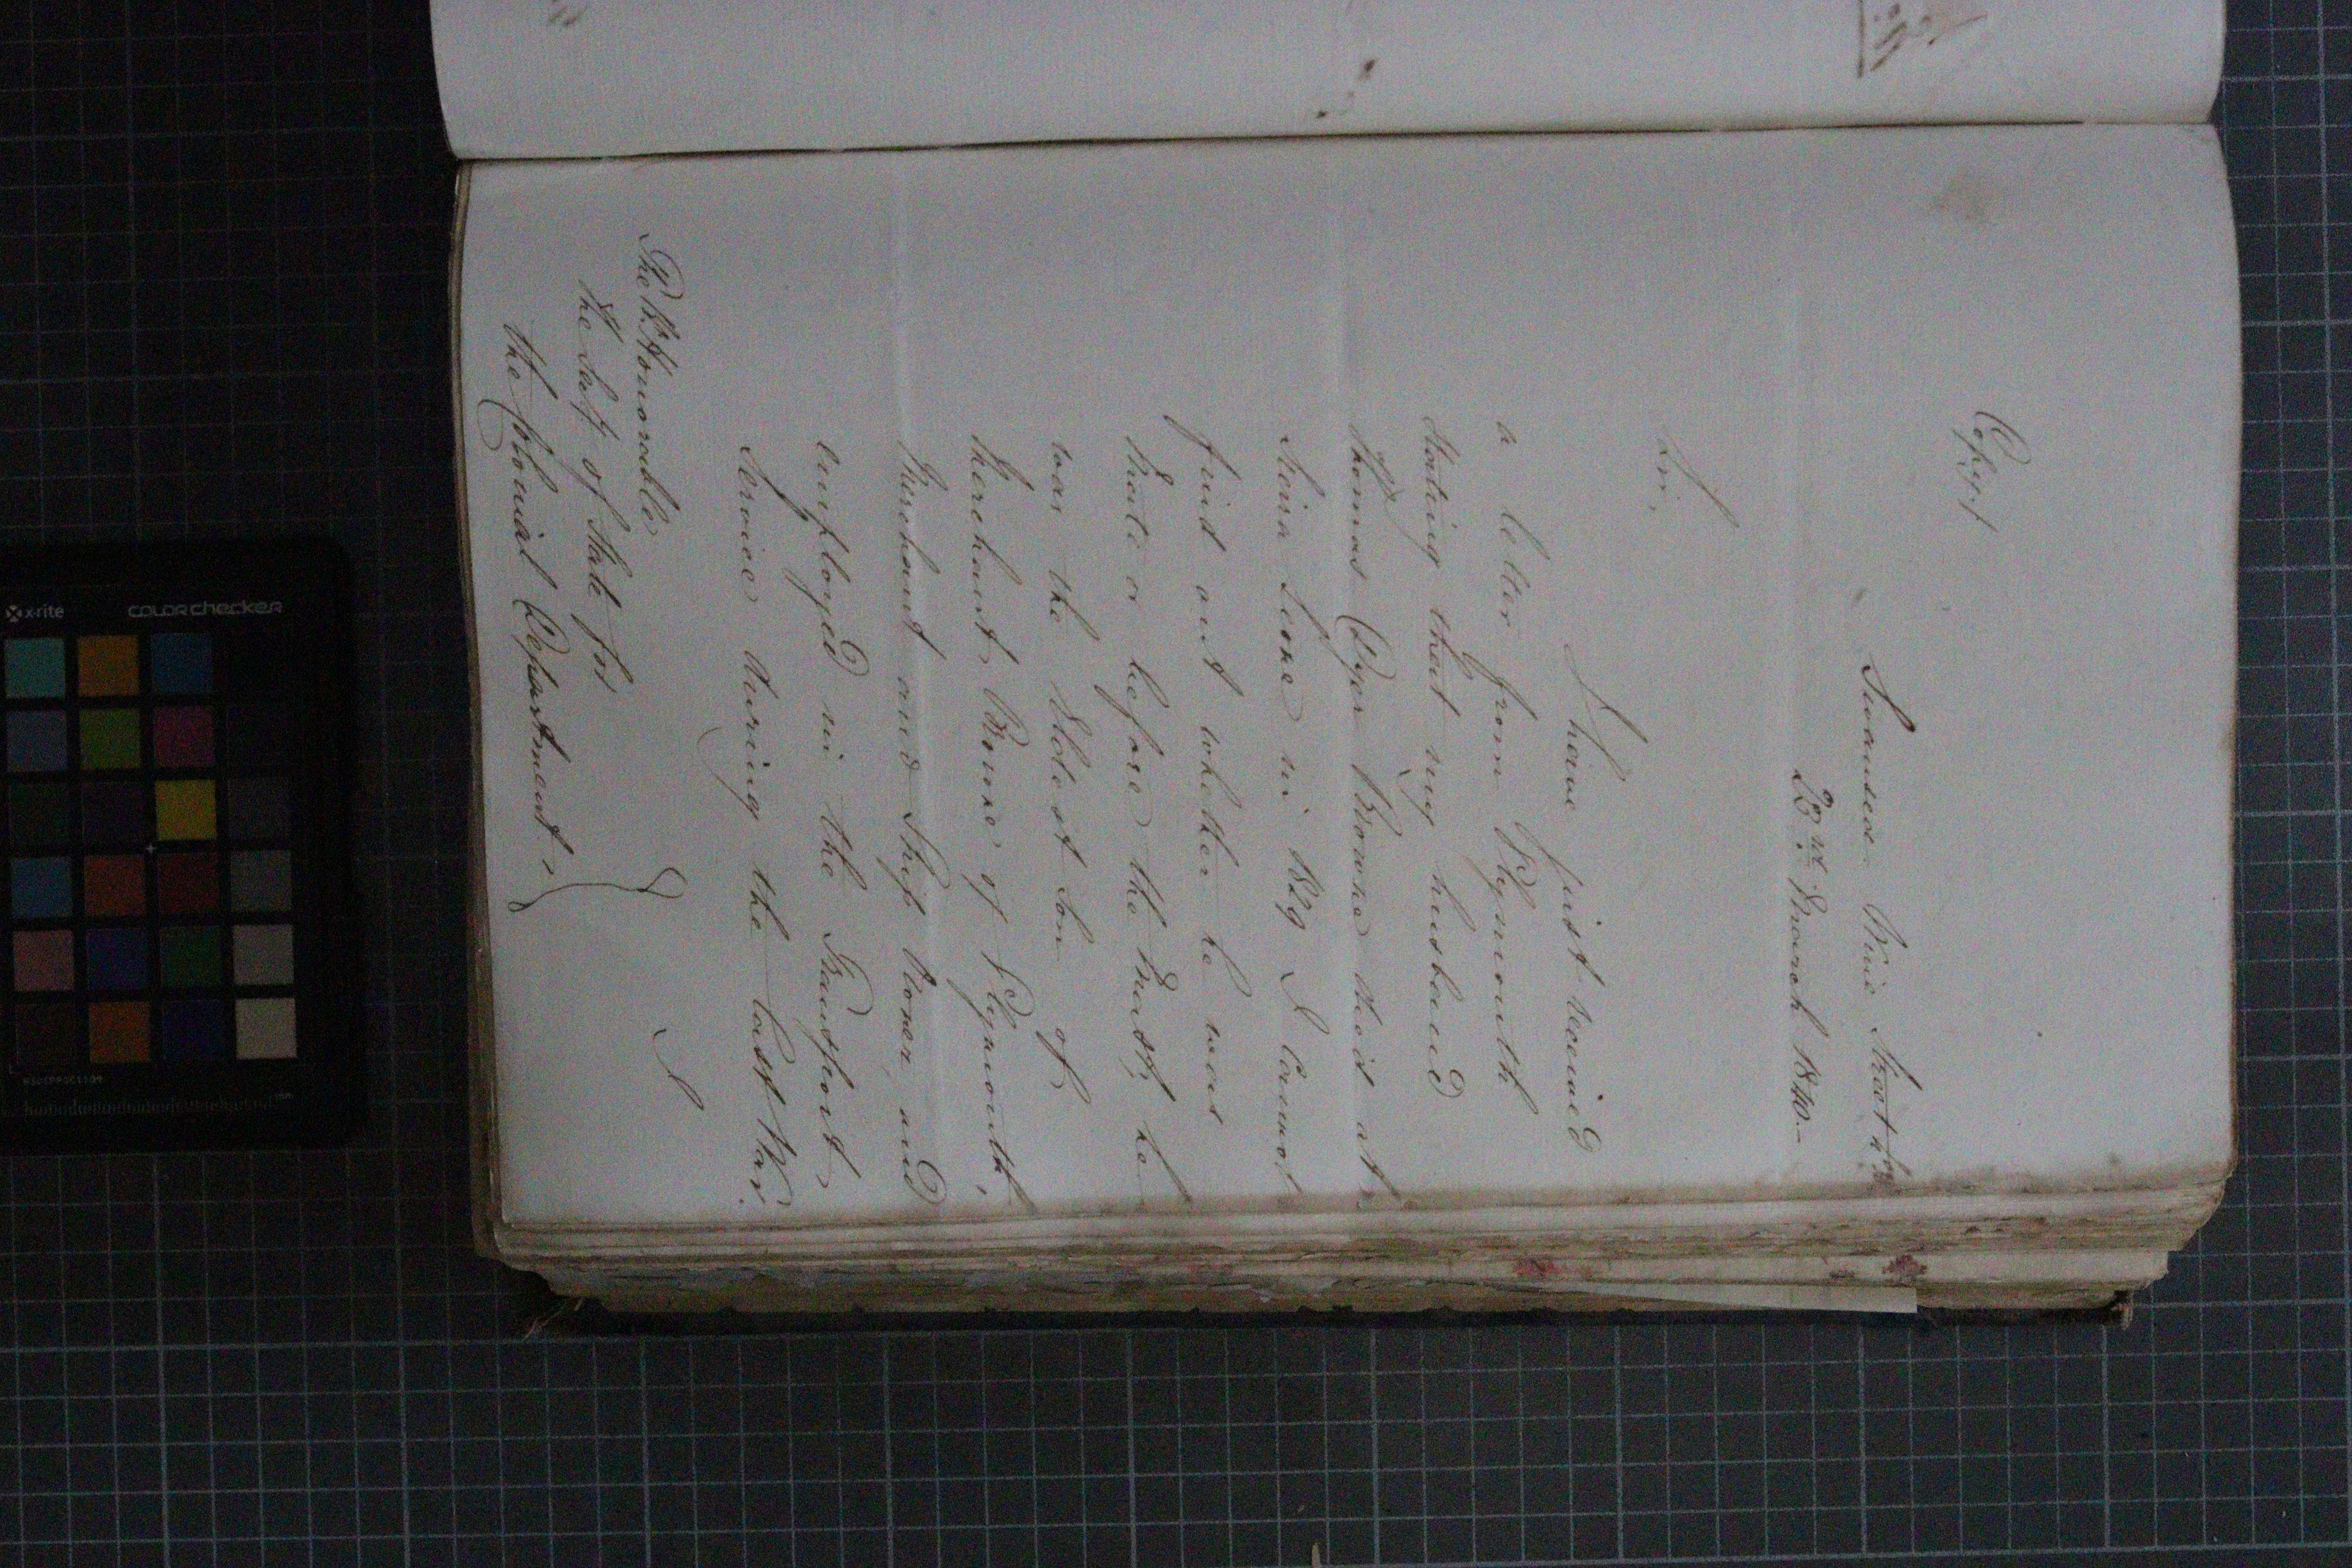 Copy/
Swansea Wine Street
23rd March 1840.—
Sir,
I have just received
a letter from Plymouth
stating that my husband
Thomas Dyer Bowne died at
Sierra Leone in 1829 I cannot
find out whether he was
Mate or before the Mast; he
was the Eldest Son of
Merchant Bowne of Plymouth,
Merchant and Ship Owner, and
employed in the Transport
Service during the last War.
I
The Rt. Honorable
the Secy of State for
the Colonial Department
x-rite
colorchecker